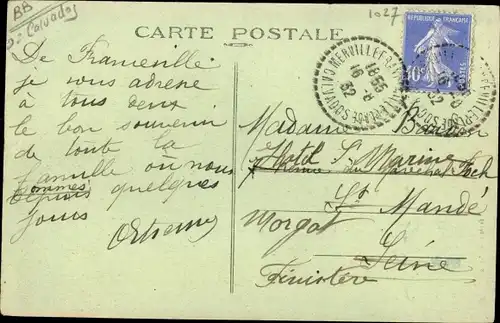 BB
Calvados
1027
CARTE POSTALE
RÉPUBLIQUE FRANÇAISE
40c
POSTES
18 55
16 - 8
32
De Franceville
je vous adresse
à tous deux
le bon souvenir
de toute la
famille où nous
sommes
depuis quelques
jours
Madame
Hotel Ste Marine
du Maréchal Foch
St Mandé
Morgat
Seine
Finistère